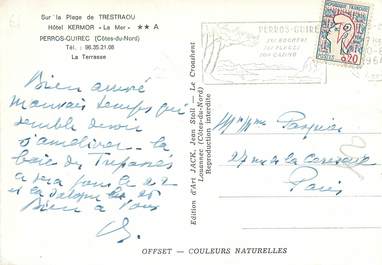 Sur la Plage de TRESTRAOU
Hôtel KERMOR « La Mer » ★★ A
PERROS-GUIREC (Côtes-du-Nord)
Tél. : 96.35.21.08
La Terrasse
PERROS-GUIREC
SES ROCHERS
SES PLAGES
SON CASINO
0,20
Bien arrivé
mauvais temps qui
semble devoir
s'améliorer - la
baie des Trépassés
sera pour le 22
et la
Bien à Vous
Mr Mme Pasquier
27 rue de la
Paris
Edition d'Art JACK, Jean Stoll - Le Croashent
Louannec (Côtes-du-Nord)
Reproduction interdite
OFFSET — COULEURS NATURELLES